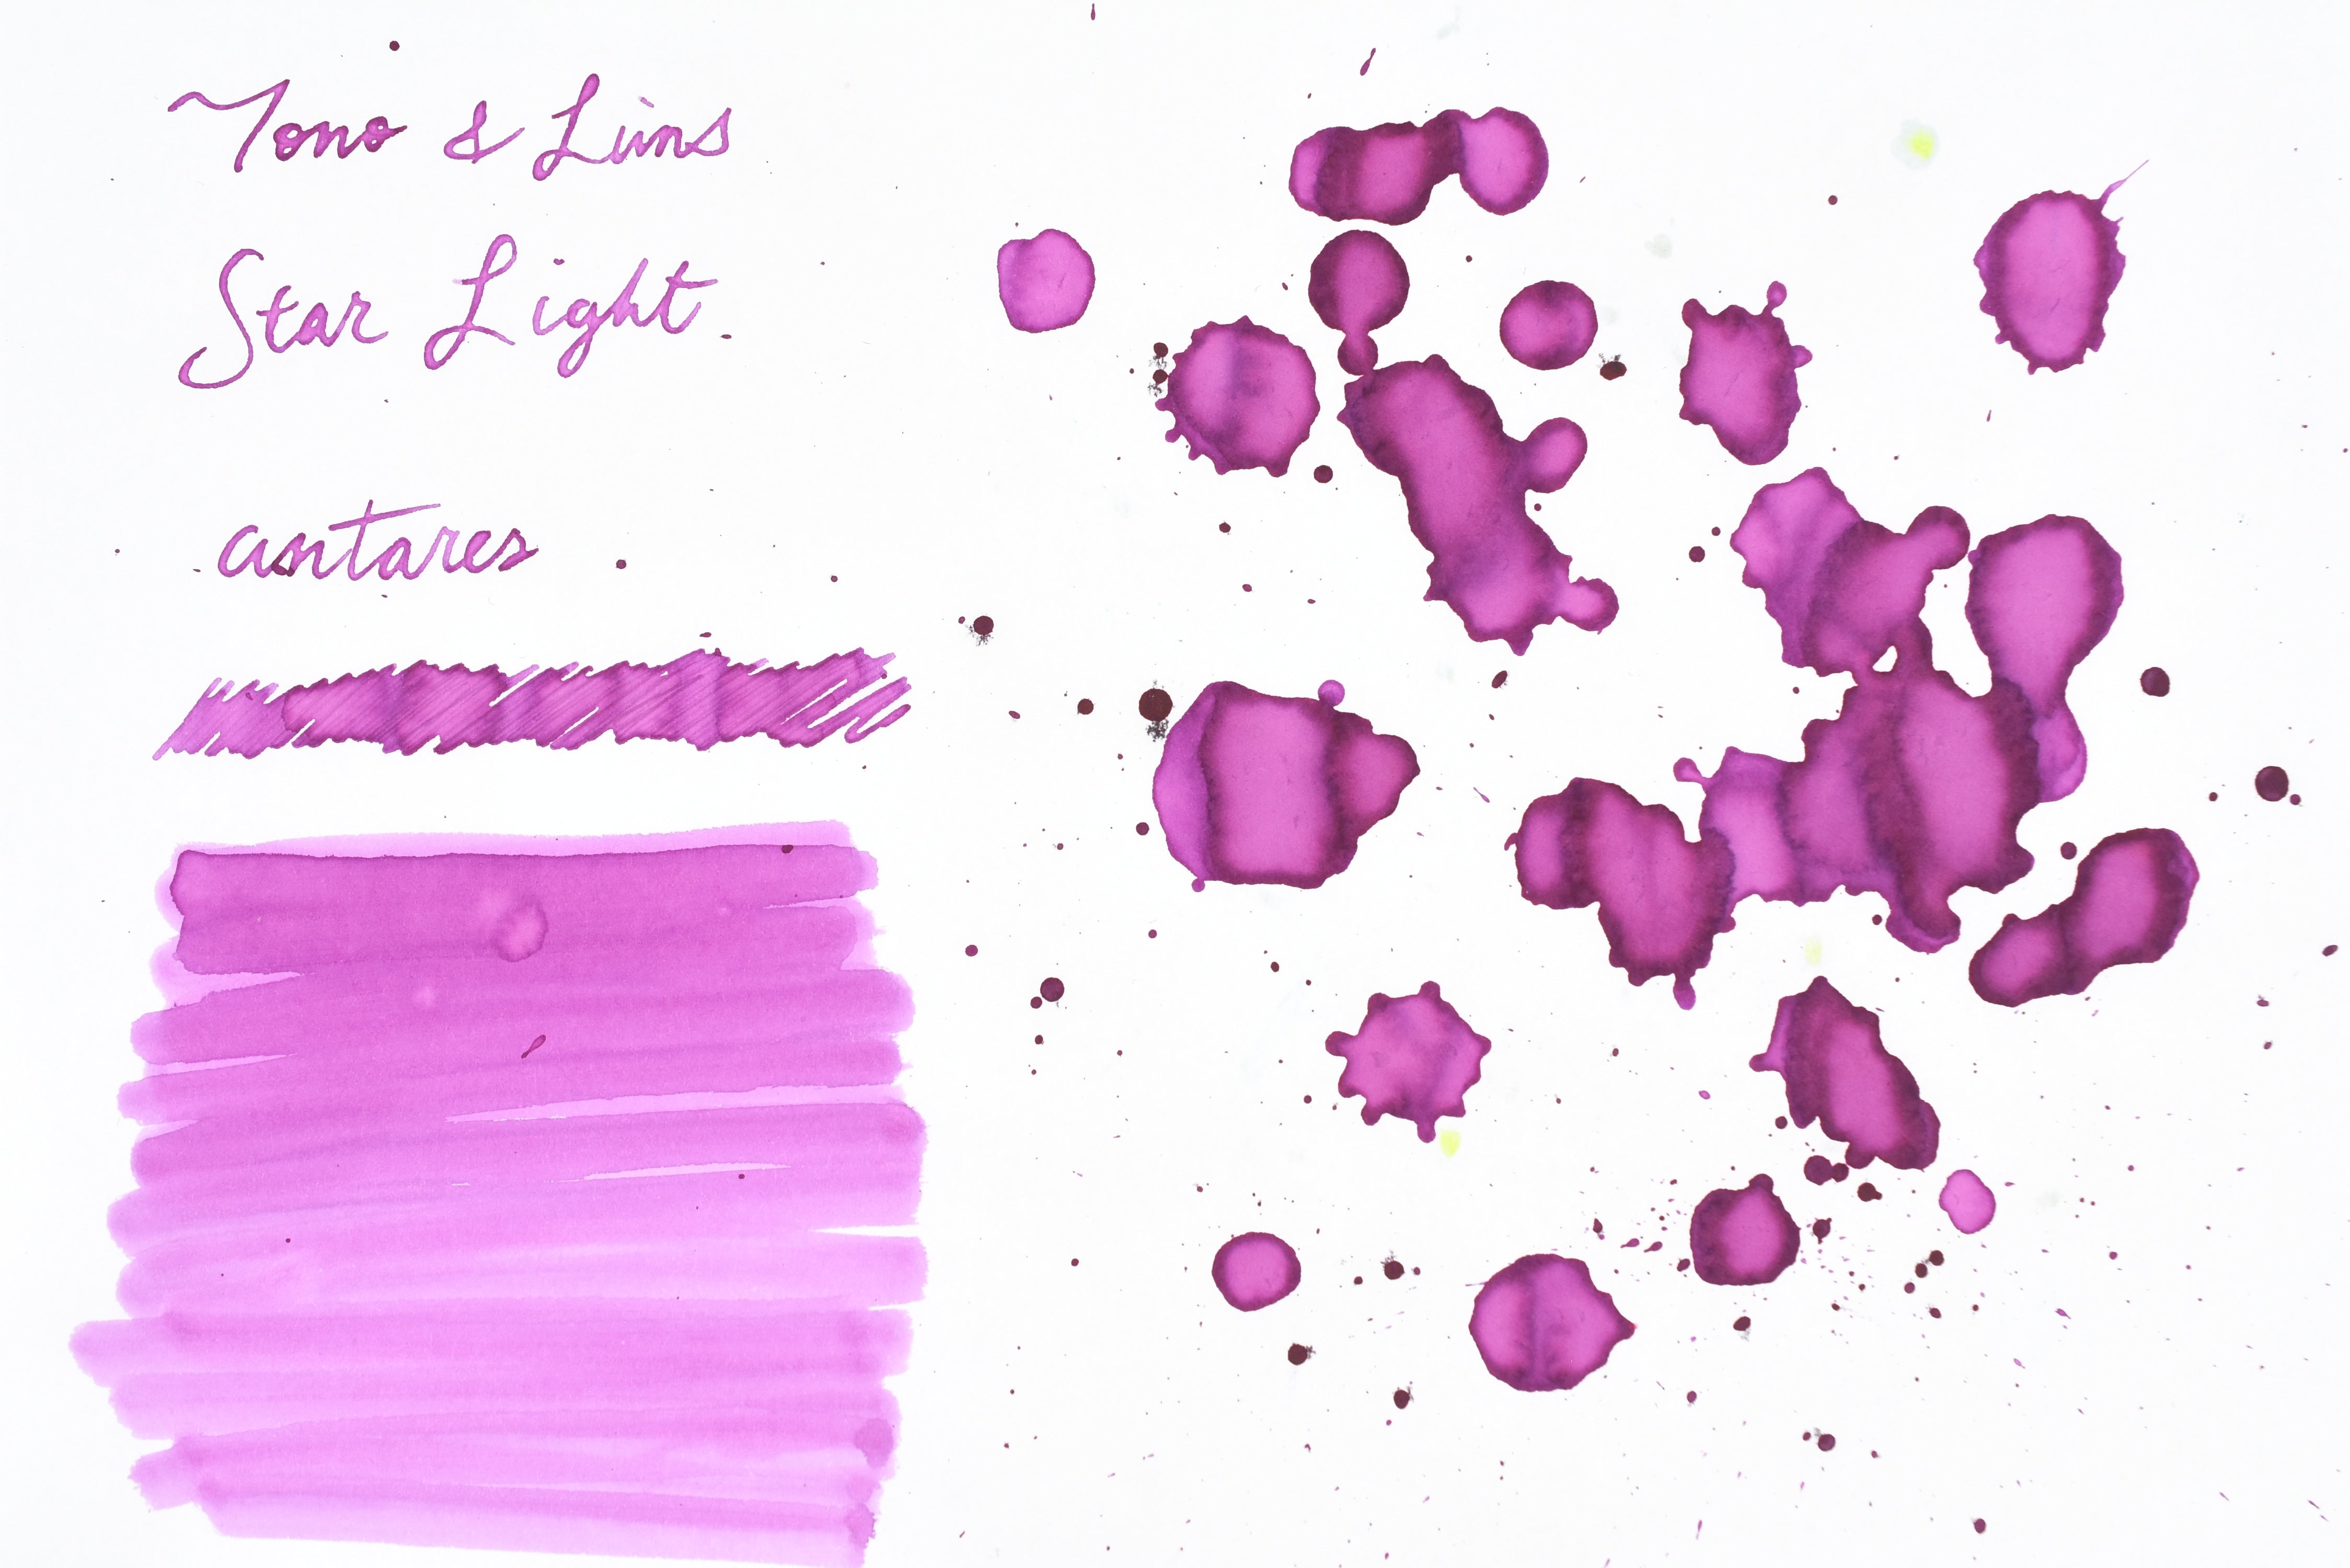 Tono & Lims
Star Light
antares